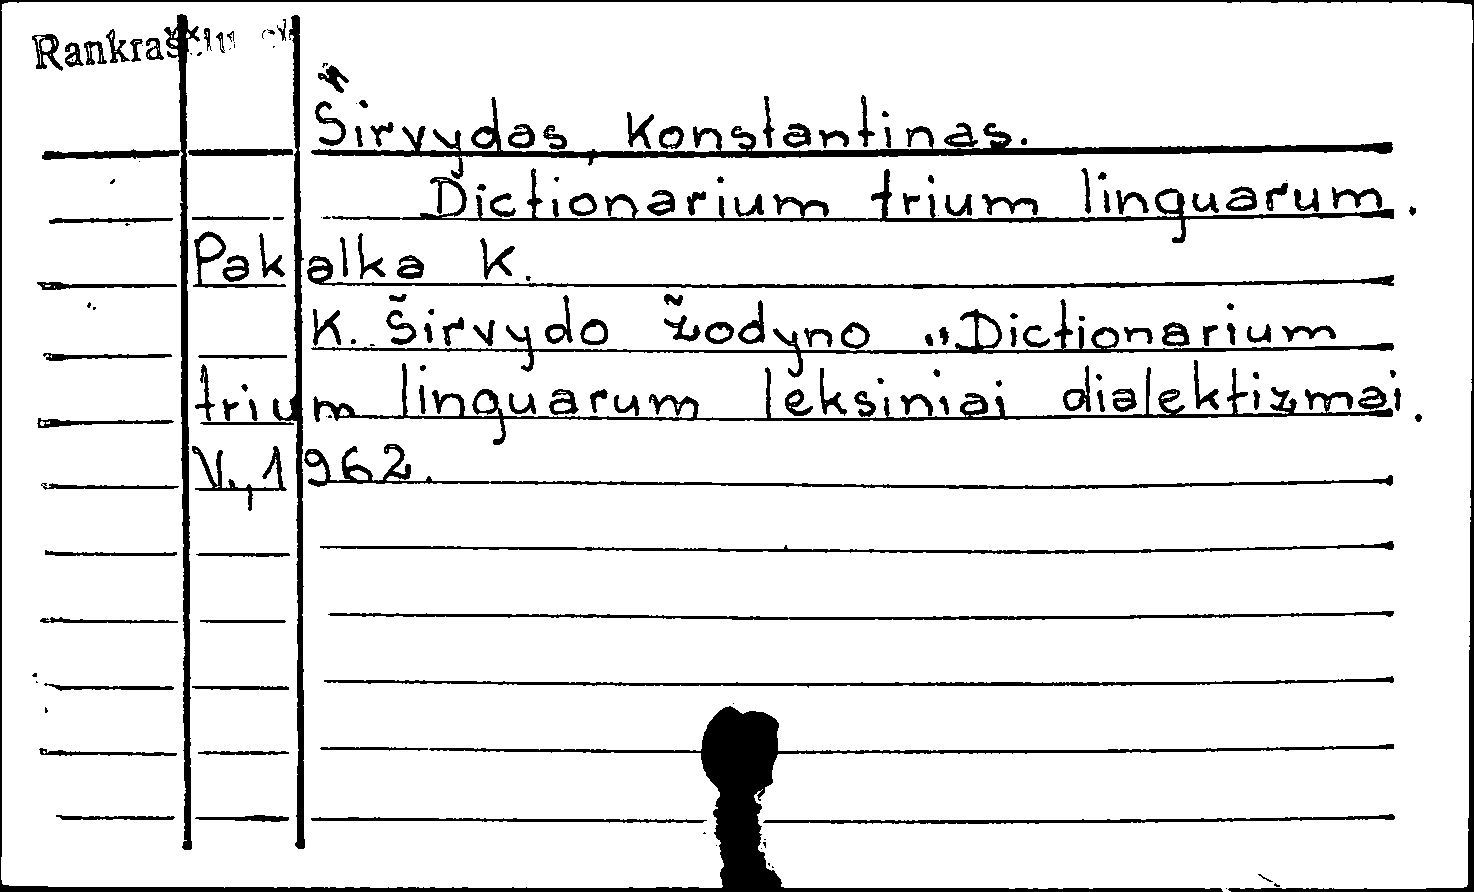 Rankraščių
Širvydas, Konstantinas.
Dictionarium trium linguarum.
Pakalka K.
K. Širvydo žodyno „Dictionarium
trium linguarum leksiniai dialektizmai.
V., 1962.